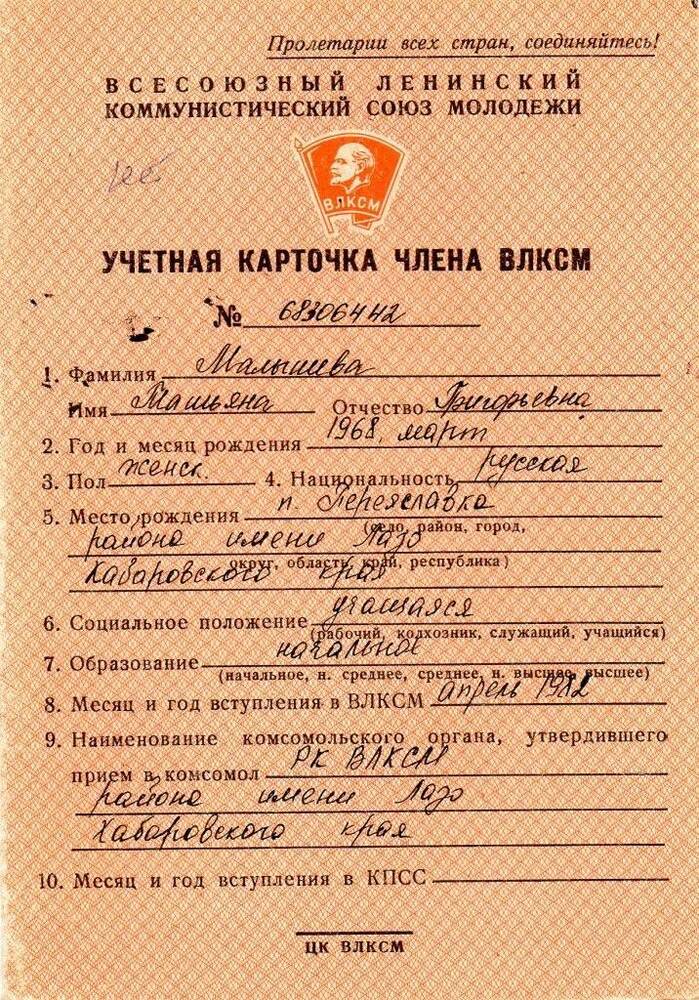 Пролетарии всех стран, соединяйтесь!
ВСЕСОЮЗНЫЙ ЛЕНИНСКИЙ
КОММУНИСТИЧЕСКИЙ СОЮЗ МОЛОДЕЖИ
ВЛКСМ
УЧЕТНАЯ КАРТОЧКА ЧЛЕНА ВЛКСМ
№ 68306442
1. Фамилия Малышева
Имя Татьяна Отчество Григорьевна
2. Год и месяц рождения 1968, март
3. Пол женск. 4. Национальность русская
5. Место рождения п. Переяславка
(село, район, город,
района имени Лазо
округ, область, край, республика)
Хабаровского края
6. Социальное положение учащаяся
(рабочий, колхозник, служащий, учащийся)
7. Образование начальное
(начальное, н. среднее, среднее, н. высшее, высшее)
8. Месяц и год вступления в ВЛКСМ апрель 1982
9. Наименование комсомольского органа, утвердившего
прием в комсомол РК ВЛКСМ
района имени Лазо
Хабаровского края
10. Месяц и год вступления в КПСС
ЦК ВЛКСМ